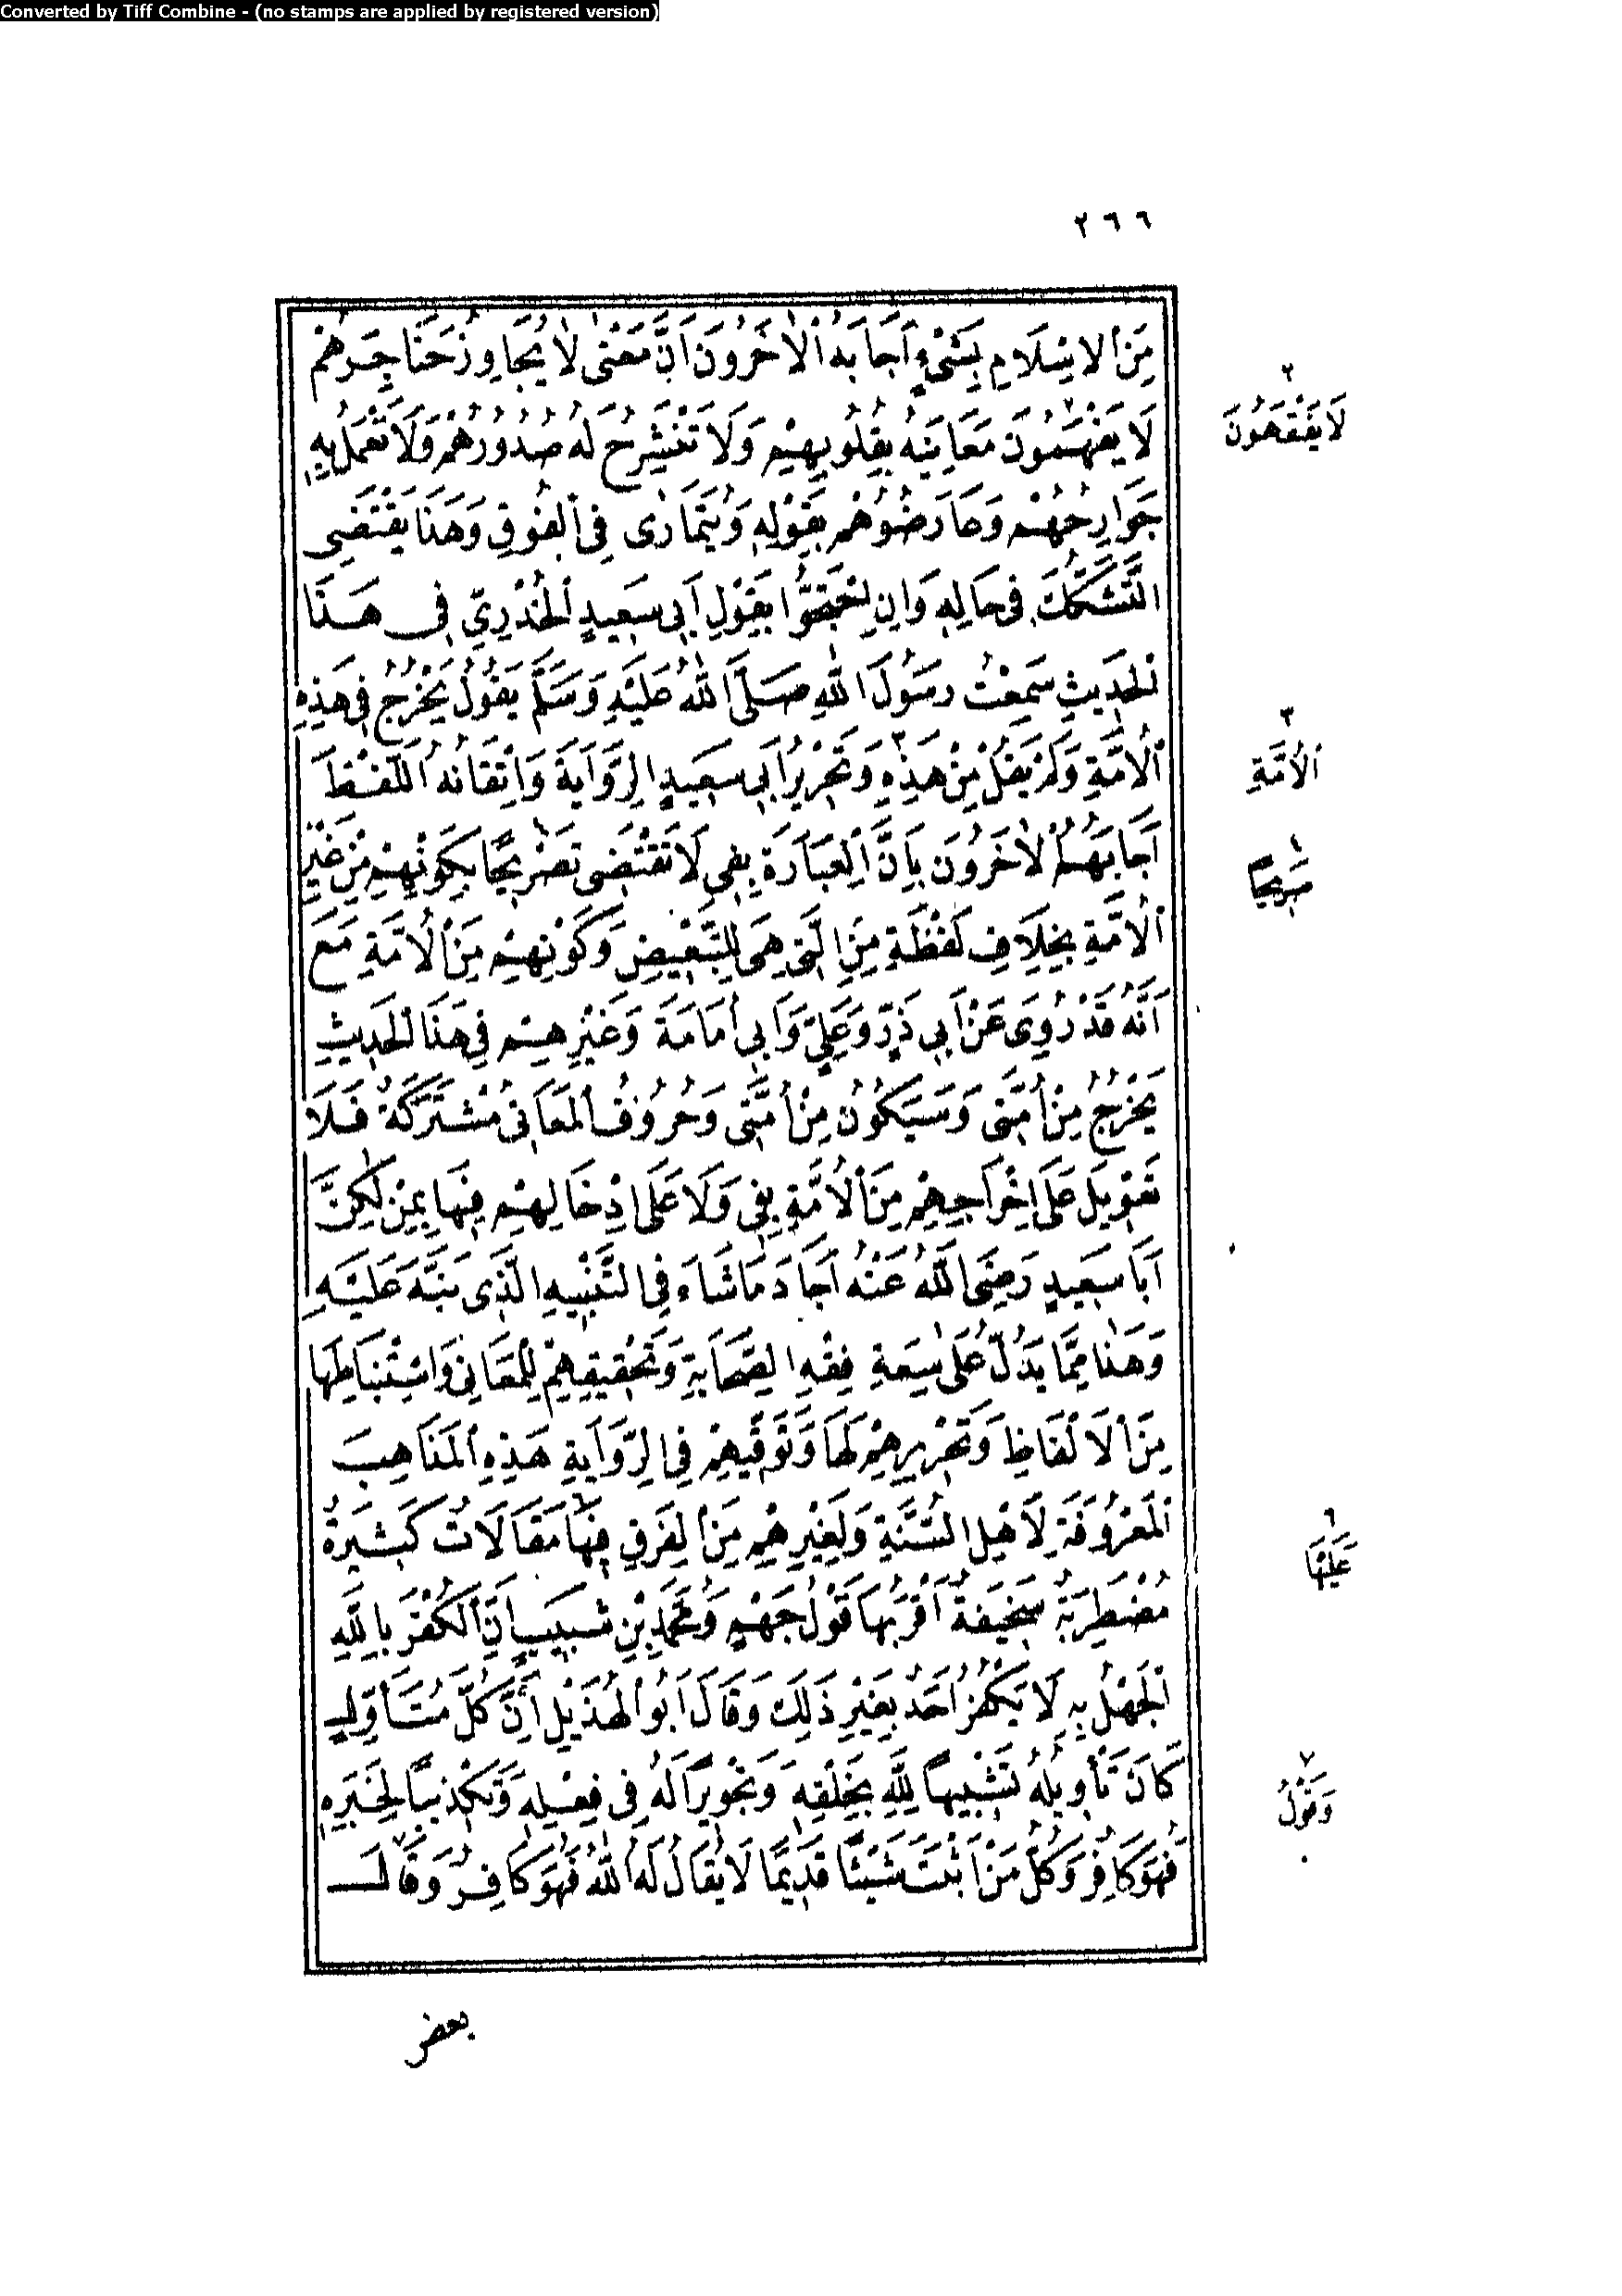 Converted by Tiff Combine - (no stamps are applied by registered version)
٢٦٦
مِنَ الْاِسْلَامِ بِشَىْءٍ اَجَابَهُ الْاٰخَرُونَ اَنَّ مَعْنٰى لَا يُجَاوِزُ حَنَاجِرَهُمْ
لَا يَفْهَمُونَ مَعَانِيَهُ بِقُلُوبِهِمْ وَلَا تَنْشَرِحُ لَهُ صُدُورُهُمْ وَلَا تَعْمَلُ بِهِ
جَوَارِحُهُمْ وَعَارَضُوهُمْ بِقَوْلِهِ وَيُتَمَارٰى فِى الْفُوقِ وَهَذَا يَقْتَضِى
التَّشَكُّكَ فِى حَالِهِ وَاِنِ احْتَجُّوا بِقَوْلِ اَبِى سَعِيدٍ الْخُدْرِىِّ فِى هَذَا
الْحَدِيثِ سَمِعْتُ رَسُولَ اللّٰهِ صَلَّى اللّٰهُ عَلَيْهِ وَسَلَّمَ يَقُولُ يَخْرُجُ فِى هَذِهِ
الْاُمَّةِ وَلَمْ يَقُلْ مِنْ هَذِهِ ٣ وَتَحْرِيرُ اَبِى سَعِيدٍ الرِّوَايَةَ وَاِتْقَانُهُ اللَّفْظَ
اَجَابَهُمُ الْاٰخَرُونَ بِاَنَّ الْعِبَارَةَ بِفِى لَا تَقْتَضِى تَصْرِيحًا بِكَوْنِهِمْ مِنْ غَيْرِ
الْاُمَّةِ بِخِلَافِ لَفْظَةِ مِنَ الَّتِى هِىَ لِلتَّبْعِيضِ وَكَوْنِهِمْ مِنَ الْاُمَّةِ مَعَ
اَنَّهُ قَدْ رُوِىَ عَنْ اَبِى ذَرٍّ وَعَلِىٍّ وَاَبِى اُمَامَةَ وَغَيْرِهِمْ فِى هَذَا الْحَدِيثِ
يَخْرُجُ مِنْ اُمَّتِى وَسَيَكُونُ مِنْ اُمَّتِى وَحُرُوفُ الْمَعَانِى مُشْتَرَكَةٌ فَلَا
تَعْوِيلَ عَلَى اِخْرَاجِهِمْ مِنَ الْاُمَّةِ بِفِى وَلَا عَلَى اِدْخَالِهِمْ فِيهَا بِمِنْ لٰكِنَّ
اَبَا سَعِيدٍ رَضِىَ اللّٰهُ عَنْهُ اَجَادَ مَا شَاءَ فِى التَّنْبِيهِ الَّذِى نَبَّهَ عَلَيْهِ
وَهَذَا مِمَّا يَدُلُّ عَلٰى سِعَةِ فِقْهِ الصَّحَابَةِ وَتَحْقِيقِهِمْ لِلْمَعَانِى وَاسْتِنْبَاطِهَا
مِنَ الْاَلْفَاظِ وَتَحْرِيرِهِمْ لَهَا وَتَوَقِّيهِمْ فِى الرِّوَايَةِ هَذِهِ الْمَذَاهِبُ
الْمَعْرُوفَةُ لِاَهْلِ السُّنَّةِ وَلِغَيْرِهِمْ مِنَ الْفِرَقِ فِيهَا ٦ مَقَالَاتٌ كَثِيرَةٌ
مُضْطَرِبَةٌ سَخِيفَةٌ اَقْرَبُهَا قَوْلُ جَهْمٍ وَمُحَمَّدِ بْنِ شَبِيبٍ اَنَّ الْكُفْرَ بِاللّٰهِ
الْجَهْلُ بِهِ لَا يَكْفُرُ اَحَدٌ بِغَيْرِ ذَلِكَ وَقَالَ اَبُو الْهُذَيْلِ اَنَّ كُلَّ مُتَأَوِّلٍ
كَانَ تَأْوِيلُهُ تَشْبِيهًا لِلّٰهِ بِخَلْقِهِ وَتَجْوِيرًا لَهُ فِى فِعْلِهِ وَتَكْذِيبًا لِخَبَرِهِ
فَهُوَ كَافِرٌ وَكُلُّ مَنْ اَثْبَتَ شَيْئًا قَدِيمًا لَا يُقَالُ لَهُ اللّٰهُ فَهُوَ كَافِرٌ وَقَالَ ٧
٢
لَا يَفْقَهُونَ
٣
الْاُمَّةِ
صَرِيحًا
٦
عَلَيْهَا
٧
وَقَوْلُ
بعض